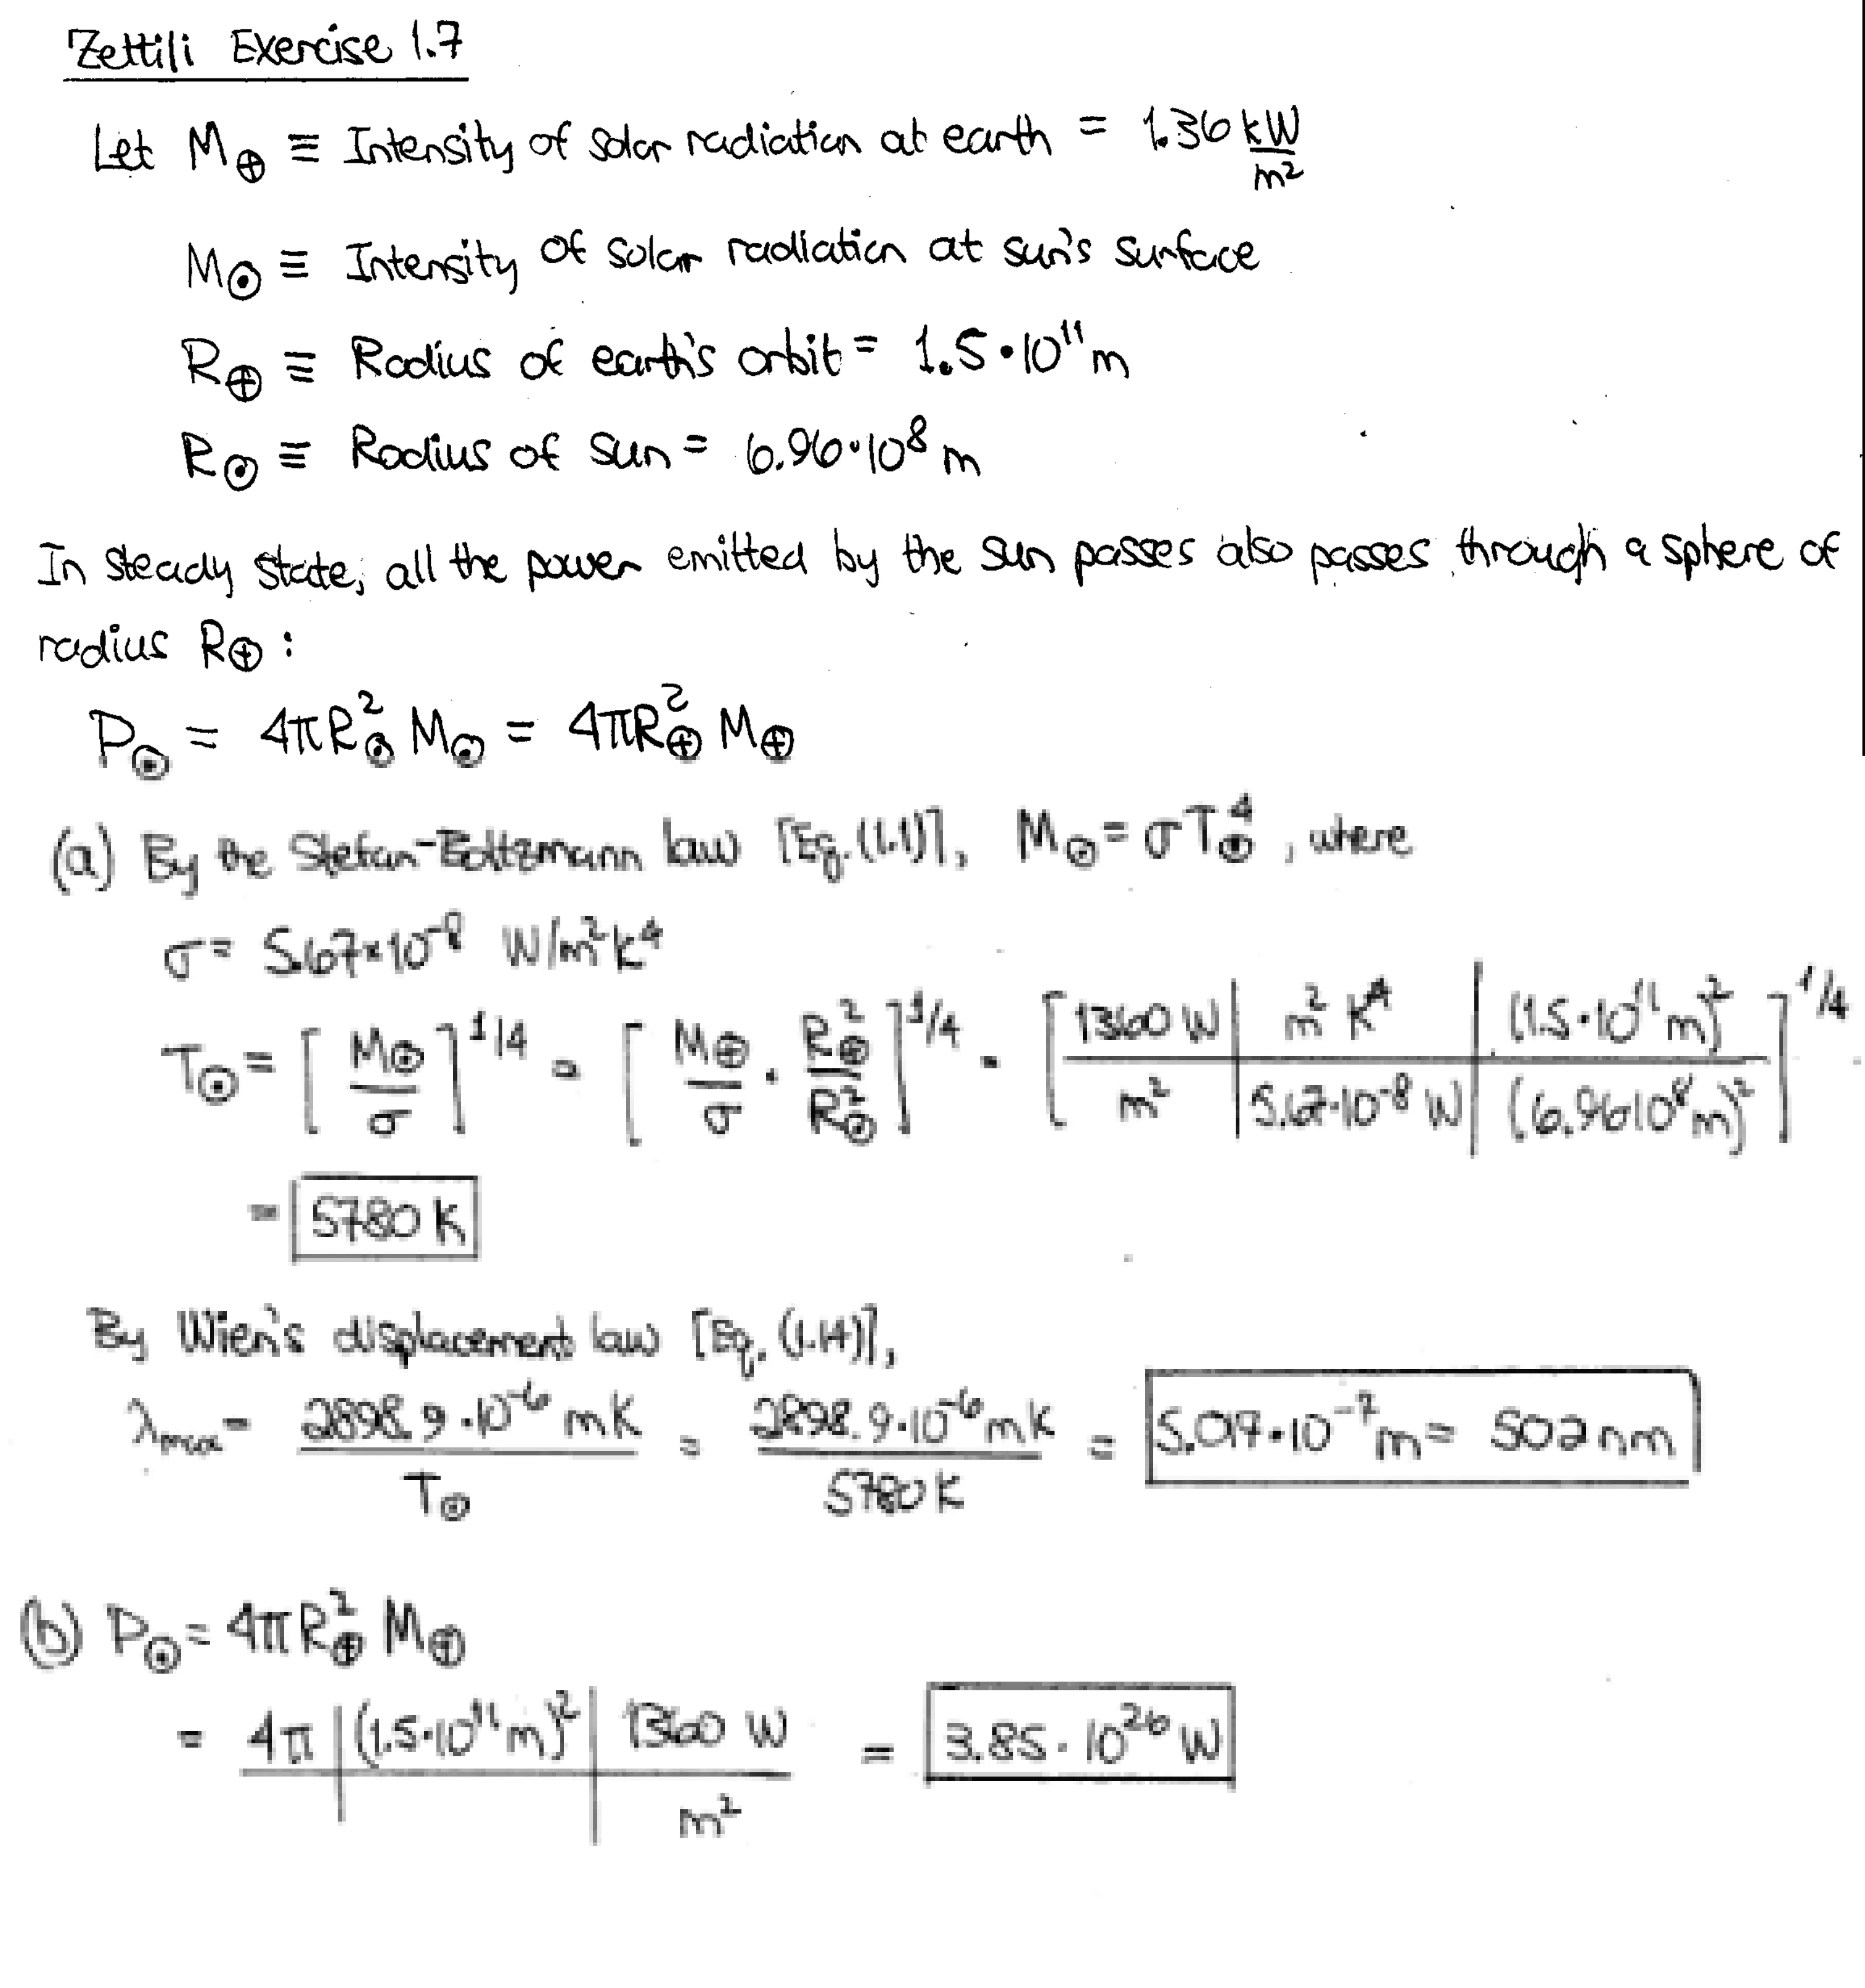 Zettili Exercise 1.7
Let M⊕ ≡ Intensity of solar radiation at earth = 1.36 kW/m²
M⊙ ≡ Intensity of solar radiation at sun's surface
R⊕ ≡ Radius of earth's orbit = 1.5·10¹¹ m
R⊙ ≡ Radius of sun = 6.96·10⁸ m
In steady state, all the power emitted by the sun passes also passes through a sphere of
radius R⊕ :
P⊙ = 4πR⊙² M⊙ = 4πR⊕² M⊕
(a) By the Stefan-Boltzmann law [Eq. (1.1)], M⊙ = σT⊙⁴, where
σ = 5.67×10⁻⁸ W/m²K⁴
T⊙ = [M⊙/σ]^1/4 = [M⊕/σ · R⊕²/R⊙²]^1/4 = [1360 W/m² | m² K⁴/5.67·10⁻⁸ W | (1.5·10¹¹ m)²/(6.96·10⁸ m)²]^1/4
= 5780 K
By Wien's displacement law [Eq. (1.14)],
λmax = 2898.9·10⁻⁶ mK/T⊙ = 2898.9·10⁻⁶ mK/5780 K = 5.017·10⁻⁷ m = 502 nm
(b) P⊙ = 4πR⊕² M⊕
= 4π | (1.5·10¹¹ m)² | 1360 W/m² = 3.85·10²⁶ W